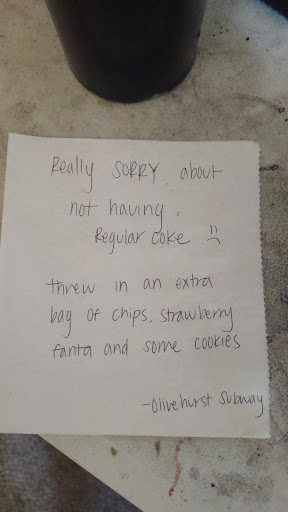 Really SORRY about
not having
Regular coke :(
threw in an extra
bag of chips, strawberry
fanta and some cookies
-Olivehurst Subway